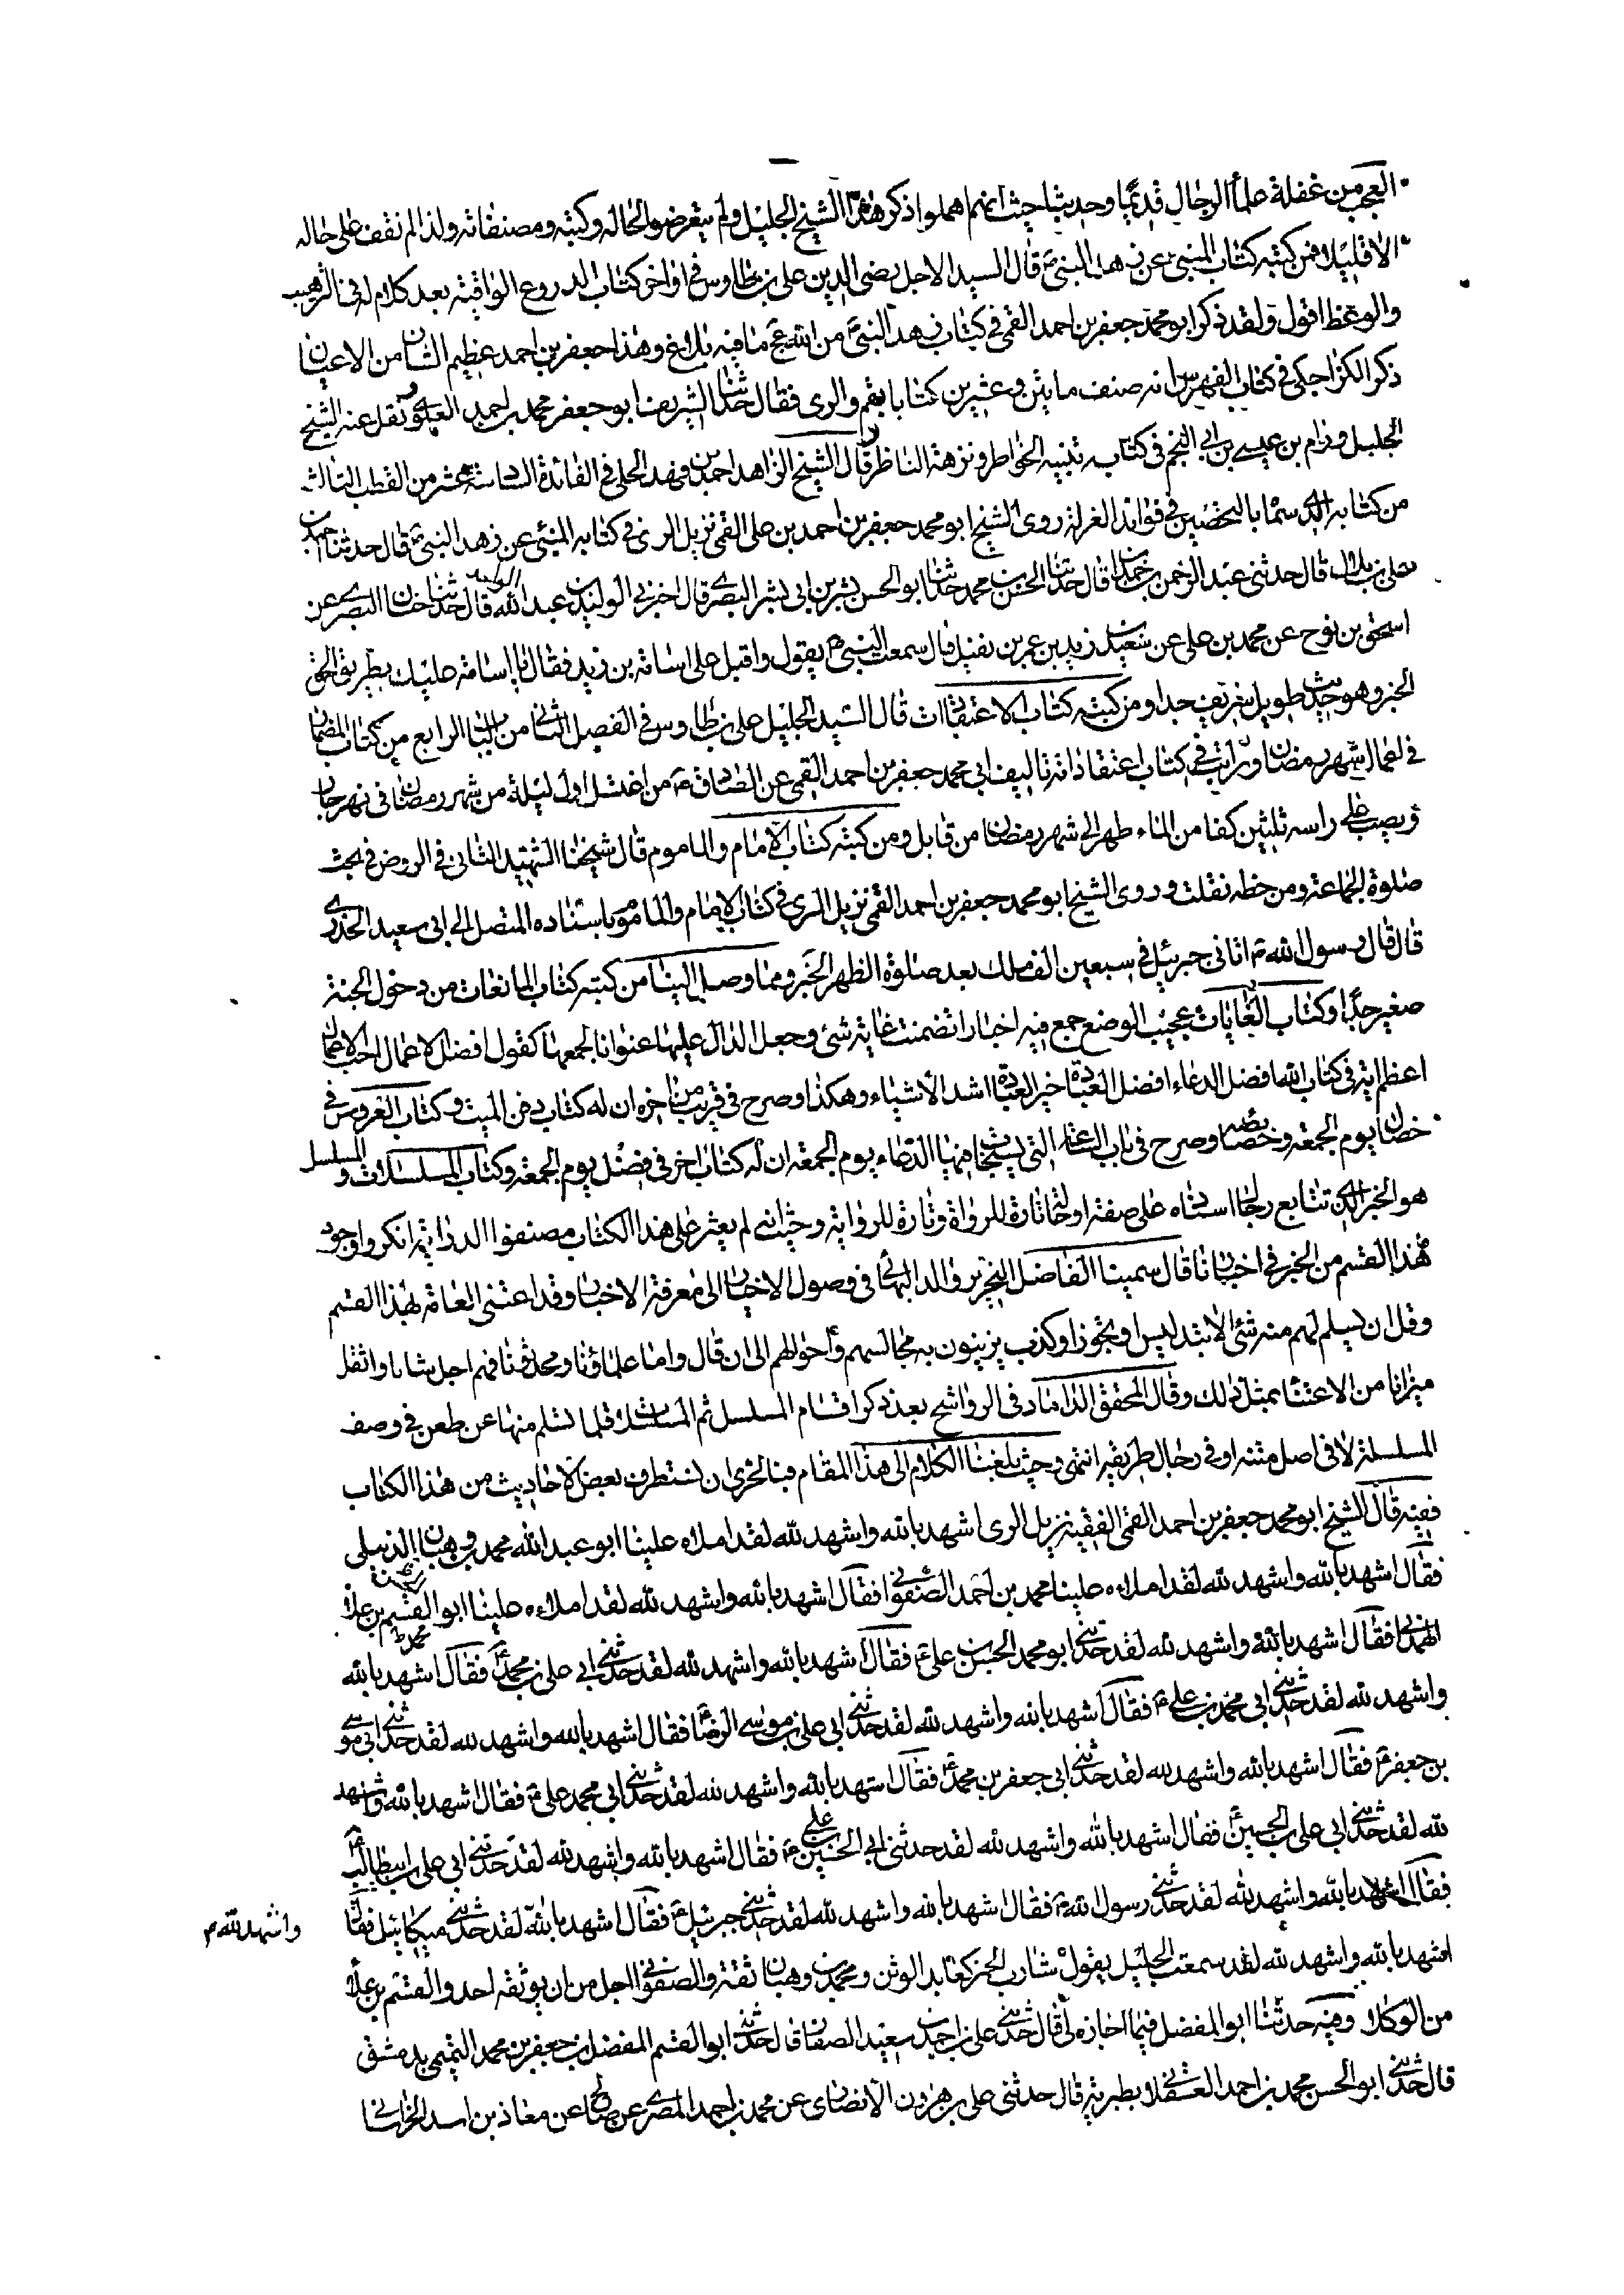 العجب من غفلة علماء الرجال قديما وحديثا حيث انهم اهملوا ذكر هذا الشيخ الجليل ولم يتعرضوا لحاله وكتبه ومصنفاته ولذا لم نقف على حاله
الا قليلا فمن كتبه كتاب المنبئ عن زهد النبي ص قال السيد الاجل رضى الدين على بن طاوس فى اواخر كتاب الدروع الواقية بعد كلام له فى الترهيب
والوعظ اقول ولقد ذكر ابو محمد جعفر بن احمد القمى فى كتاب زهد النبي ص من الله عج ما فيه بلاغ وهذا جعفر بن احمد عظيم الشان من الاعيان
ذكر الكراجكى فى كتاب الفهرس انه صنف مايتين وعشرين كتابا بقم والرى فقال حدثنا الشريف ابو جعفر محمد بن احمد العلوى ونقل عنه الشيخ
الجليل ورام بن عيسى بن ابى النجم فى كتاب تنبيه الخواطر ونزهة الناظر وقال الشيخ الزاهد احمد بن فهد الحلى فى الفائدة السادسة عشر من القطب الثالث
من كتابه الذى سماه بالتحصين فى فوائد العزلة روى الشيخ ابو محمد جعفر بن احمد بن على القمى نزيل الرى فى كتابه المنبئ عن زهد النبي ص قال حدثنا احمد بن
على بن بلال قال حدثنى عبد الرحمن بن حمدان قال حدثنا الحسن بن محمد حدثنا ابو الحسن بشر بن ابى بشر البصرى قال اخبرنى الوليد بن عبد الله الواحد قال حدثنا حنان البصرى عن
اسحق بن نوح عن محمد بن على عن سعيد بن زيد بن عمر بن نفيل قال سمعت النبي ص يقول واقبل على اسامة بن زيد فقال يا اسامة عليك بطريق الحق
الخبر وهو حديث طويل شريف جدا ومن كتبه كتاب الاعتقادات قال السيد الجليل على بن طاوس فى الفصل الثانى من الباب الرابع من كتاب المضمار
فى اعمال شهر رمضان ورايت فى كتاب اعتقاداته تاليف ابى محمد جعفر بن احمد القمى عن الصادق ع من اغتسل اول ليلة من شهر رمضان فى نهر جار
ويصب على راسه ثلثين كفا من الماء طهر الى شهر رمضان من قابل ومن كتبه كتاب الامام والماموم قال شيخنا الشهيد الثانى فى الروض فى بحث
صلوة الجماعة ومن خطه نقلت وروى الشيخ ابو محمد جعفر بن احمد القمى نزيل الرى فى كتاب الامام والماموم باسناده المتصل الى ابى سعيد الخدرى
قال قال رسول الله ص اتانى جبرئيل فى سبعين الف ملك بعد صلوة الظهر الخبر ومما وصل الينا من كتبه كتاب المانعات من دخول الجنة
صغير جدا وكتاب الغايات عجيب الوضع جمع فيه اخبارا تضمنت غاية شئ وجعل الدال عليها عنوانا لجمعها كقول افضل الاعمال احب الاعمال
اعظم اية فى كتاب الله افضل الدعاء افضل العبادة خير العبادة اشد الاشياء وهكذا وصرح فى قريب من اخره ان له كتاب دفن الميت وكتاب العروس فى
خصال يوم الجمعة وخصايصه وصرح فى باب الساعة التى يستجاب فيها الدعاء يوم الجمعة ان له كتاب اخر فى فضل يوم الجمعة وكتاب المسلسلات والمسلسل
هو الخبر الذى تتابع رجال اسناده على صفة او حالة تارة للرواة وتارة للرواية وحيث لم يعثر على هذا الكتاب مصنفوا الدراية انكروا وجود
هذا القسم من الخبر فى اخبارنا قال سمينا الفاضل النحرير والد البهائى فى وصول الاخيار الى معرفة الاخبار وقد اعتنى العامة بهذا القسم
وقل ان يسلم لهم منه شئ الا بتدليس او تجوز او كذب يزينون به مجالسهم واحوالهم الى ان قال واما علماؤنا ومحدثونا فهم اجل شانا واثقل
ميزانا من الاعتناء بمثل ذلك وقال المحقق الداماد فى الرواشح بعد ذكر اقسام المسلسل ثم المسلسلات قلما تسلم منها عن طعن فى وصف
المسلسلة لا فى اصل متنه او فى رجال طريقه انتهى وحيث بلغنا الكلام الى هذا المقام فبالحرى ان نستطرف بعض الاحاديث من هذا الكتاب
ففيه قال الشيخ ابو محمد جعفر بن احمد القمى الفقيه نزيل الرى اشهد بالله واشهد لله لقد املاه علينا ابو عبد الله محمد بن وهبان الدبيلى
فقال اشهد بالله واشهد لله لقد املاه علينا محمد بن احمد الصفوانى فقال اشهد بالله واشهد لله لقد املاه علينا ابو القسم بن علاء
الهمدانى فقال اشهد بالله واشهد لله لقد حدثنى ابو محمد الحسن بن على ع فقال اشهد بالله واشهد لله لقد حدثنى ابى على بن محمد ع فقال اشهد بالله
واشهد لله لقد حدثنى ابى محمد بن على ع فقال اشهد بالله واشهد لله لقد حدثنى ابى على بن موسى الرضا ع فقال اشهد بالله واشهد لله لقد حدثنى ابى موسى
بن جعفر ع فقال اشهد بالله واشهد لله لقد حدثنى ابى جعفر بن محمد ع فقال اشهد بالله واشهد لله لقد حدثنى ابى محمد بن على ع فقال اشهد بالله واشهد
لله لقد حدثنى ابى على بن الحسين ع فقال اشهد بالله واشهد لله لقد حدثنى ابى الحسين بن على ع فقال اشهد بالله واشهد لله لقد حدثنى ابى على بن ابيطالب ع
فقال اشهد بالله واشهد لله لقد حدثنى رسول الله ص فقال اشهد بالله واشهد لله لقد حدثنى جبرئيل ع فقال اشهد بالله لقد حدثنى ميكائيل فقال
واشهد لله م
اشهد بالله واشهد لله لقد سمعت الجليل يقول شارب الخمر كعابد الوثن ومحمد بن وهبان ثقة والصفوانى اجل من ان يوثقه احد والقسم بن علاء
من الوكلاء وفيه حدثنا ابو المفضل فيما اجازه لى قال حدثنى على بن احمد بن سعيد الصفار قال حدثنى ابو القسم المفضل بن جعفر بن محمد التميمى بدمشق
قال حدثنى ابو الحسن محمد بن احمد العسقلانى بطبرية قال حدثنى على بن هرون الانصارى عن محمد بن احمد المصرى عن صالح عن معاذ بن اسد الخراسانى